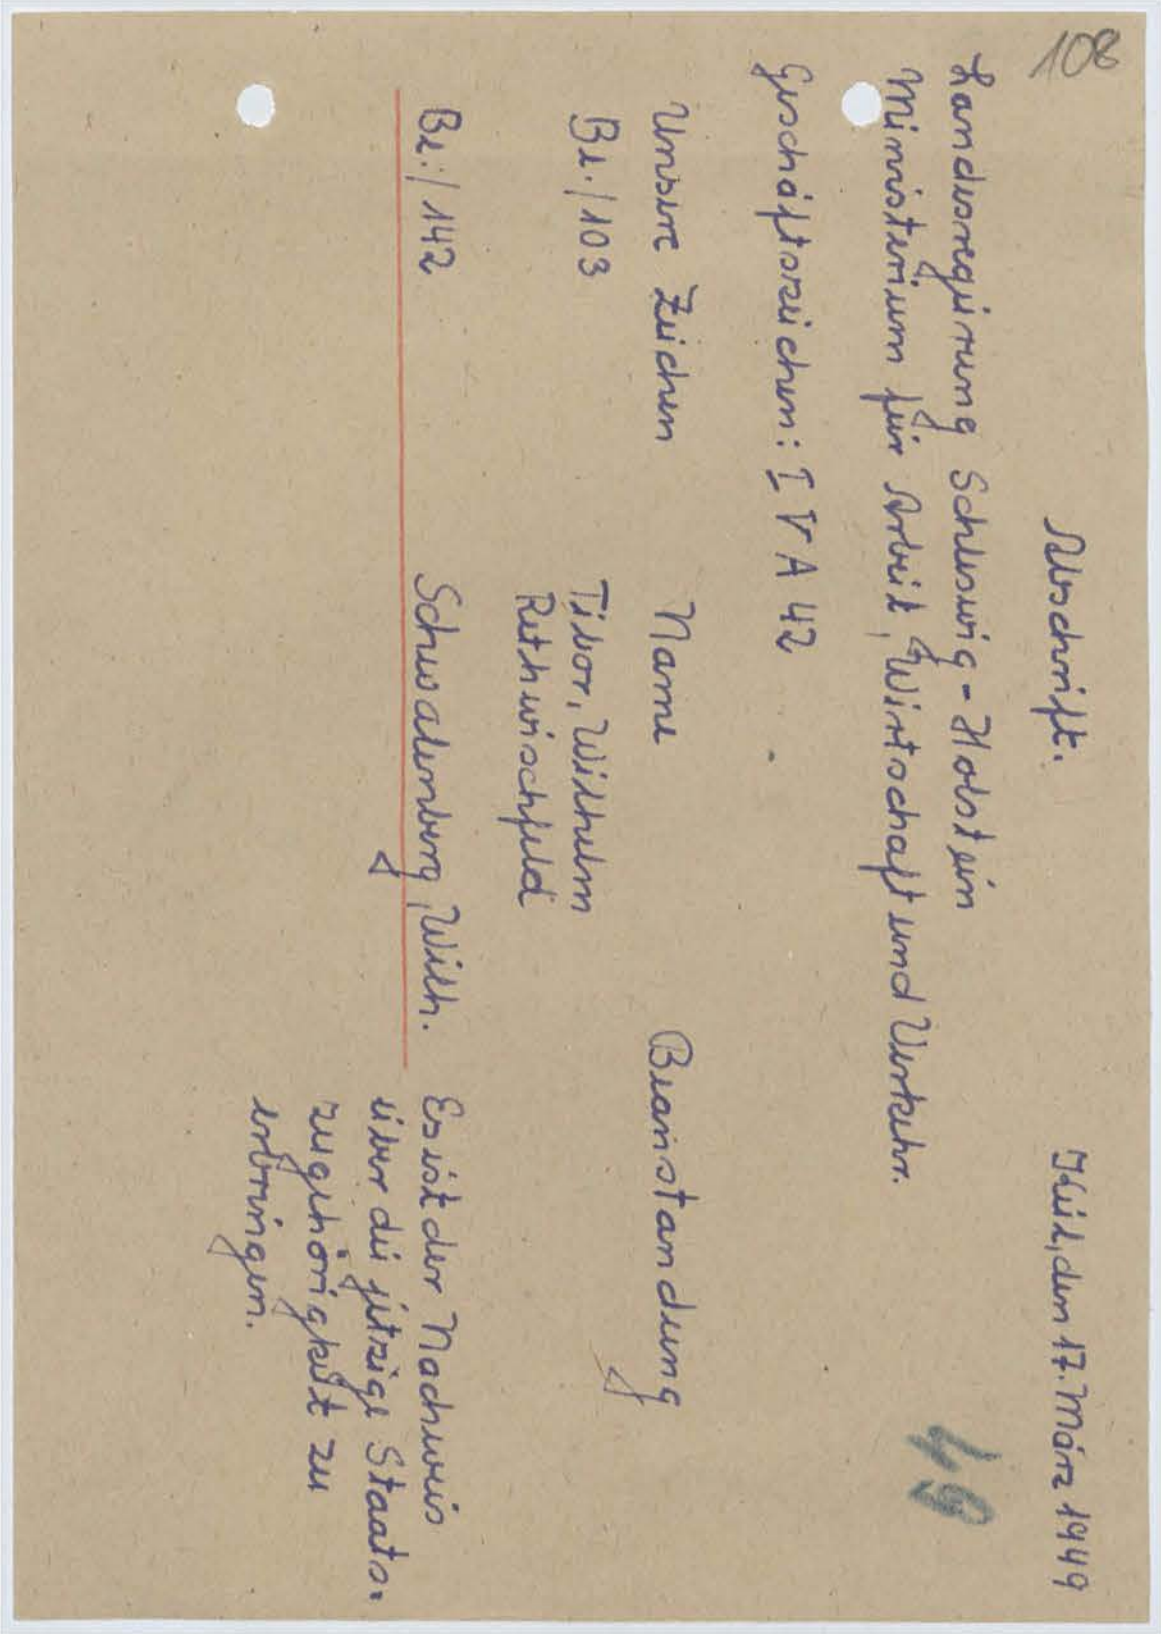 108
Abschrift.
Kiel, den 17. März 1949
Landesregierung Schleswig-Holstein
Ministerium für Arbeit, Wirtschaft und Verkehr.
49
Geschäftszeichen: I V A 42
Unsere Zeichen Name Beanstandung
Be./103 Tibor, Wilhelm
Rethwischfeld
Be./142 Schwalenberg, Wilh. Es ist der Nachweis
über die jetzige Staats-
zugehörigkeit zu
erbringen.